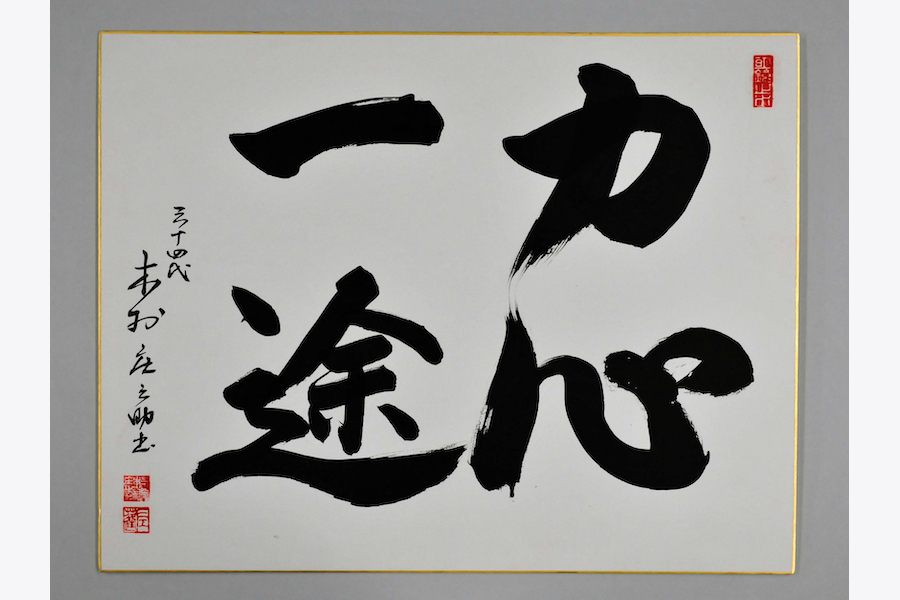 力心
一途
三十四代
木村庄之助書